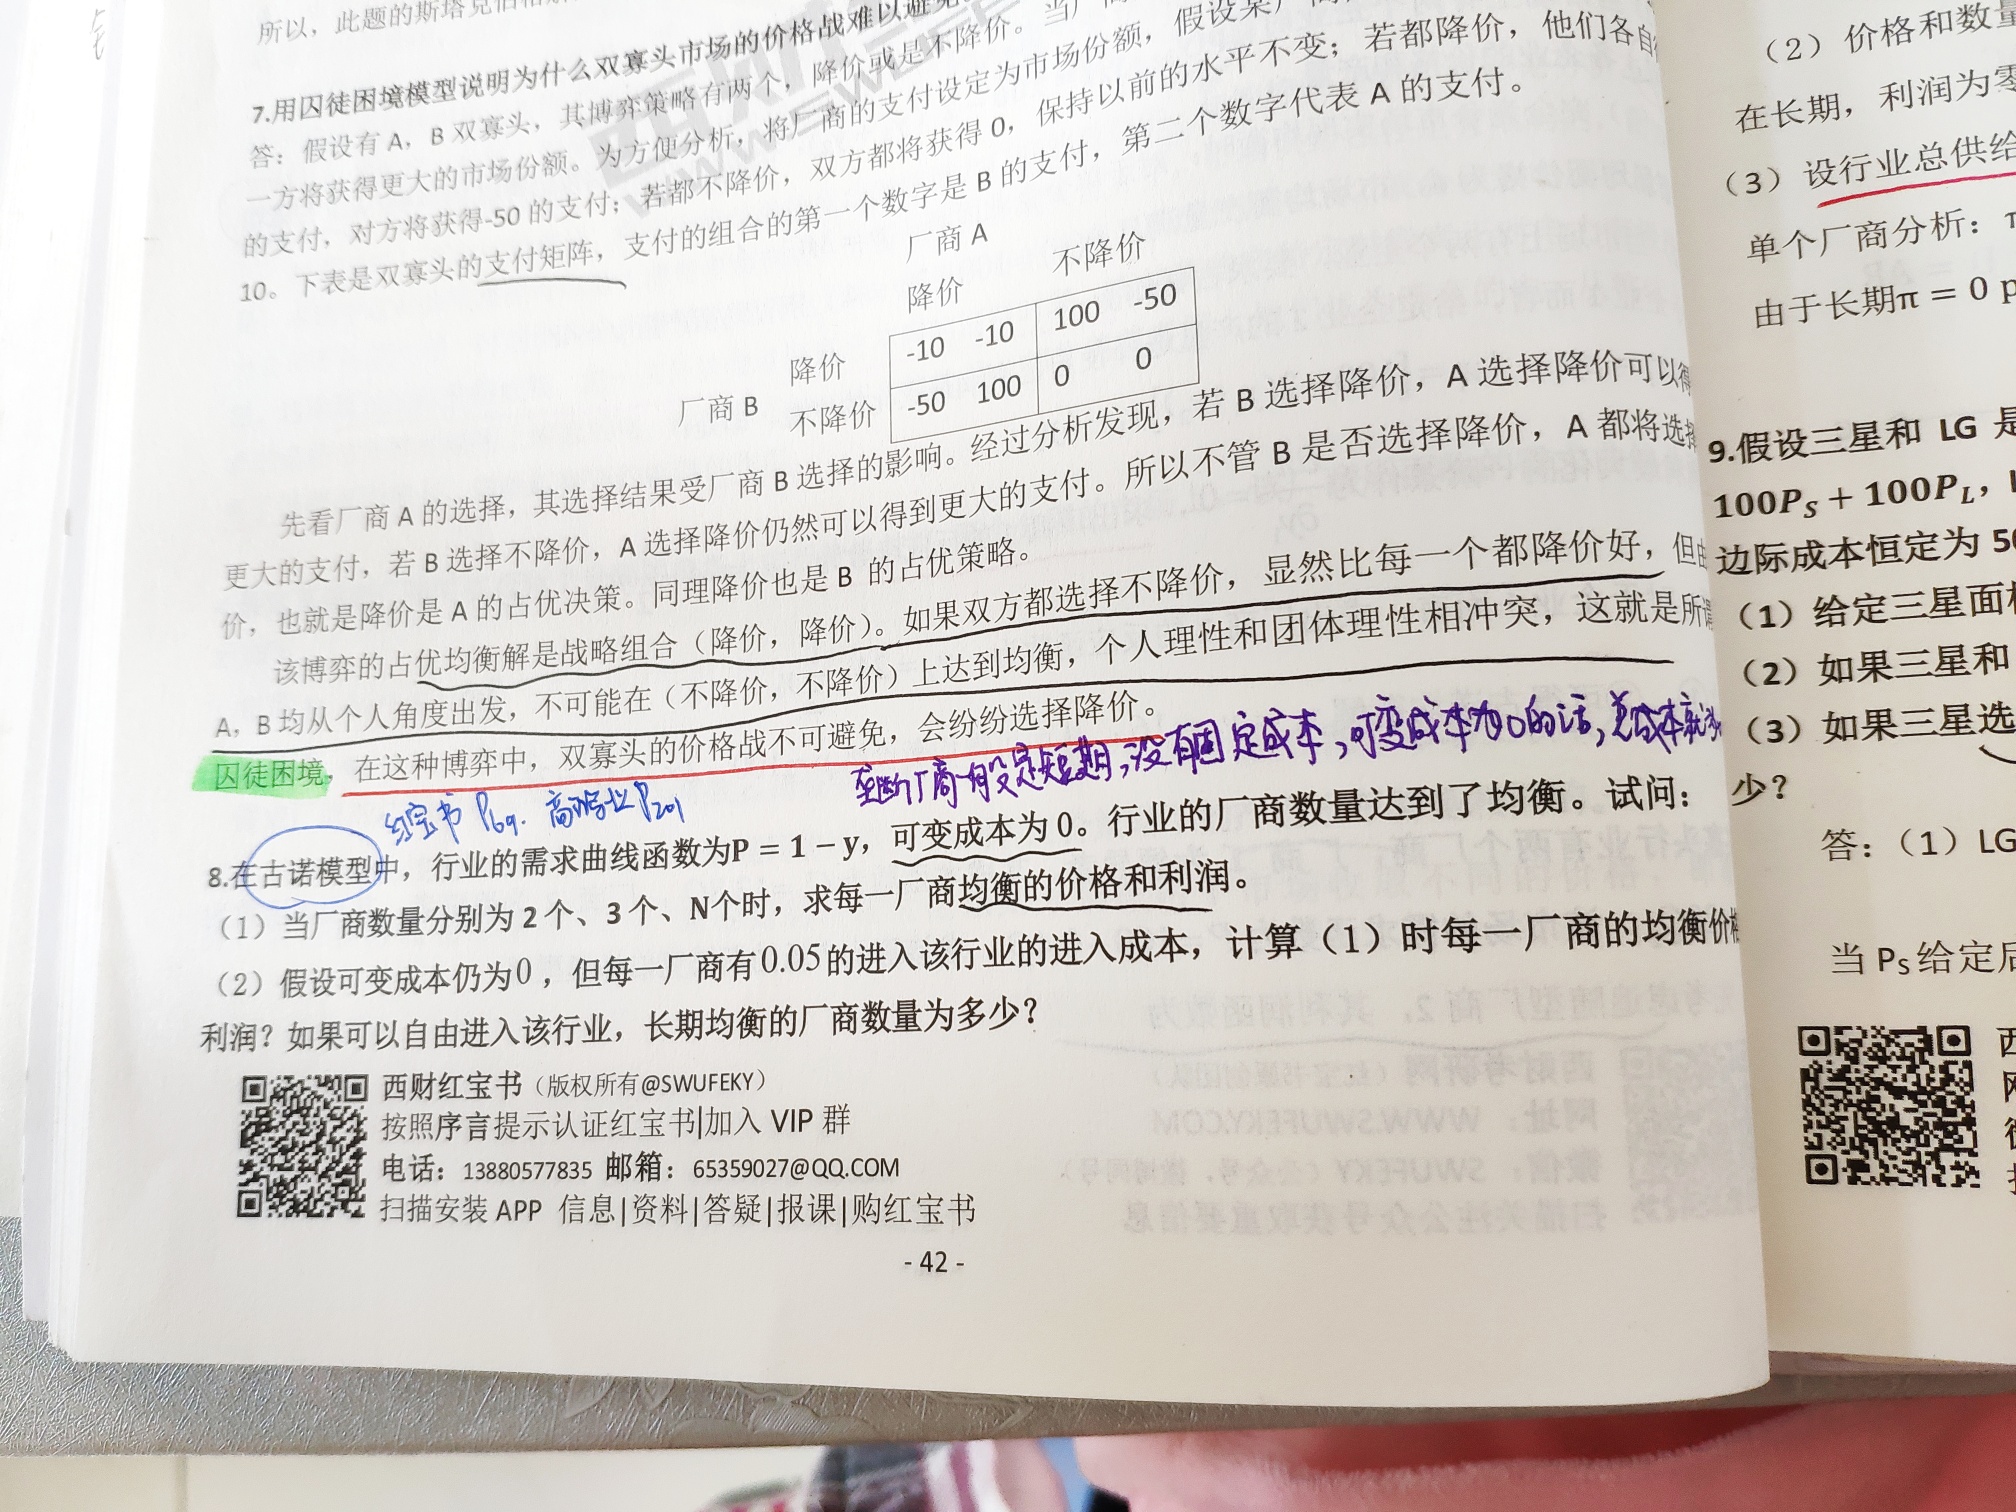 所以，此题的斯塔克伯格
7.用囚徒困境模型说明为什么双寡头市场的价格战难以避免
答：假设有 A，B 双寡头，其博弈策略有两个，降价或是不降价。当厂商
一方将获得更大的市场份额。为方便分析，将厂商的支付设定为市场份额，假设某厂商
的支付，对方将获得-50 的支付；若都不降价，双方都将获得 0，保持以前的水平不变；若都降价，他们各自
10。下表是双寡头的支付矩阵，支付的组合的第一个数字是 B 的支付，第二个数字代表 A 的支付。
厂商 A
降价 不降价
厂商 B
降价 -10 -10 100 -50
不降价 -50 100 0 0
先看厂商 A 的选择，其选择结果受厂商 B 选择的影响。经过分析发现，若 B 选择降价，A 选择降价可以得
更大的支付，若 B 选择不降价，A 选择降价仍然可以得到更大的支付。所以不管 B 是否选择降价，A 都将选择
价，也就是降价是 A 的占优决策。同理降价也是 B 的占优策略。
该博弈的占优均衡解是战略组合（降价，降价）。如果双方都选择不降价，显然比每一个都降价好，但由
A，B 均从个人角度出发，不可能在（不降价，不降价）上达到均衡，个人理性和团体理性相冲突，这就是所谓
囚徒困境，在这种博弈中，双寡头的价格战不可避免，会纷纷选择降价。
垄断厂商一般是短期，没有固定成本，可变成本为0的话，总成本就为
红宝书 P69. 高鸿业P201
8.在古诺模型中，行业的需求曲线函数为P = 1 − y，可变成本为 0。行业的厂商数量达到了均衡。试问：
（1）当厂商数量分别为 2 个、3 个、N个时，求每一厂商均衡的价格和利润。
（2）假设可变成本仍为0，但每一厂商有0.05的进入该行业的进入成本，计算（1）时每一厂商的均衡价格
利润？如果可以自由进入该行业，长期均衡的厂商数量为多少？
西财红宝书（版权所有@SWUFEKY）
按照序言提示认证红宝书|加入 VIP 群
电话：13880577835 邮箱：65359027@QQ.COM
扫描安装 APP 信息|资料|答疑|报课|购红宝书
- 42 -
（2）价格和数量
在长期，利润为零
（3）设行业总供给
单个厂商分析：π
由于长期π = 0 p
9.假设三星和 LG 是
100P_S + 100P_L，
边际成本恒定为 50
（1）给定三星面
（2）如果三星和
（3）如果三星选
少？
答：（1）LG
当 P_S 给定后